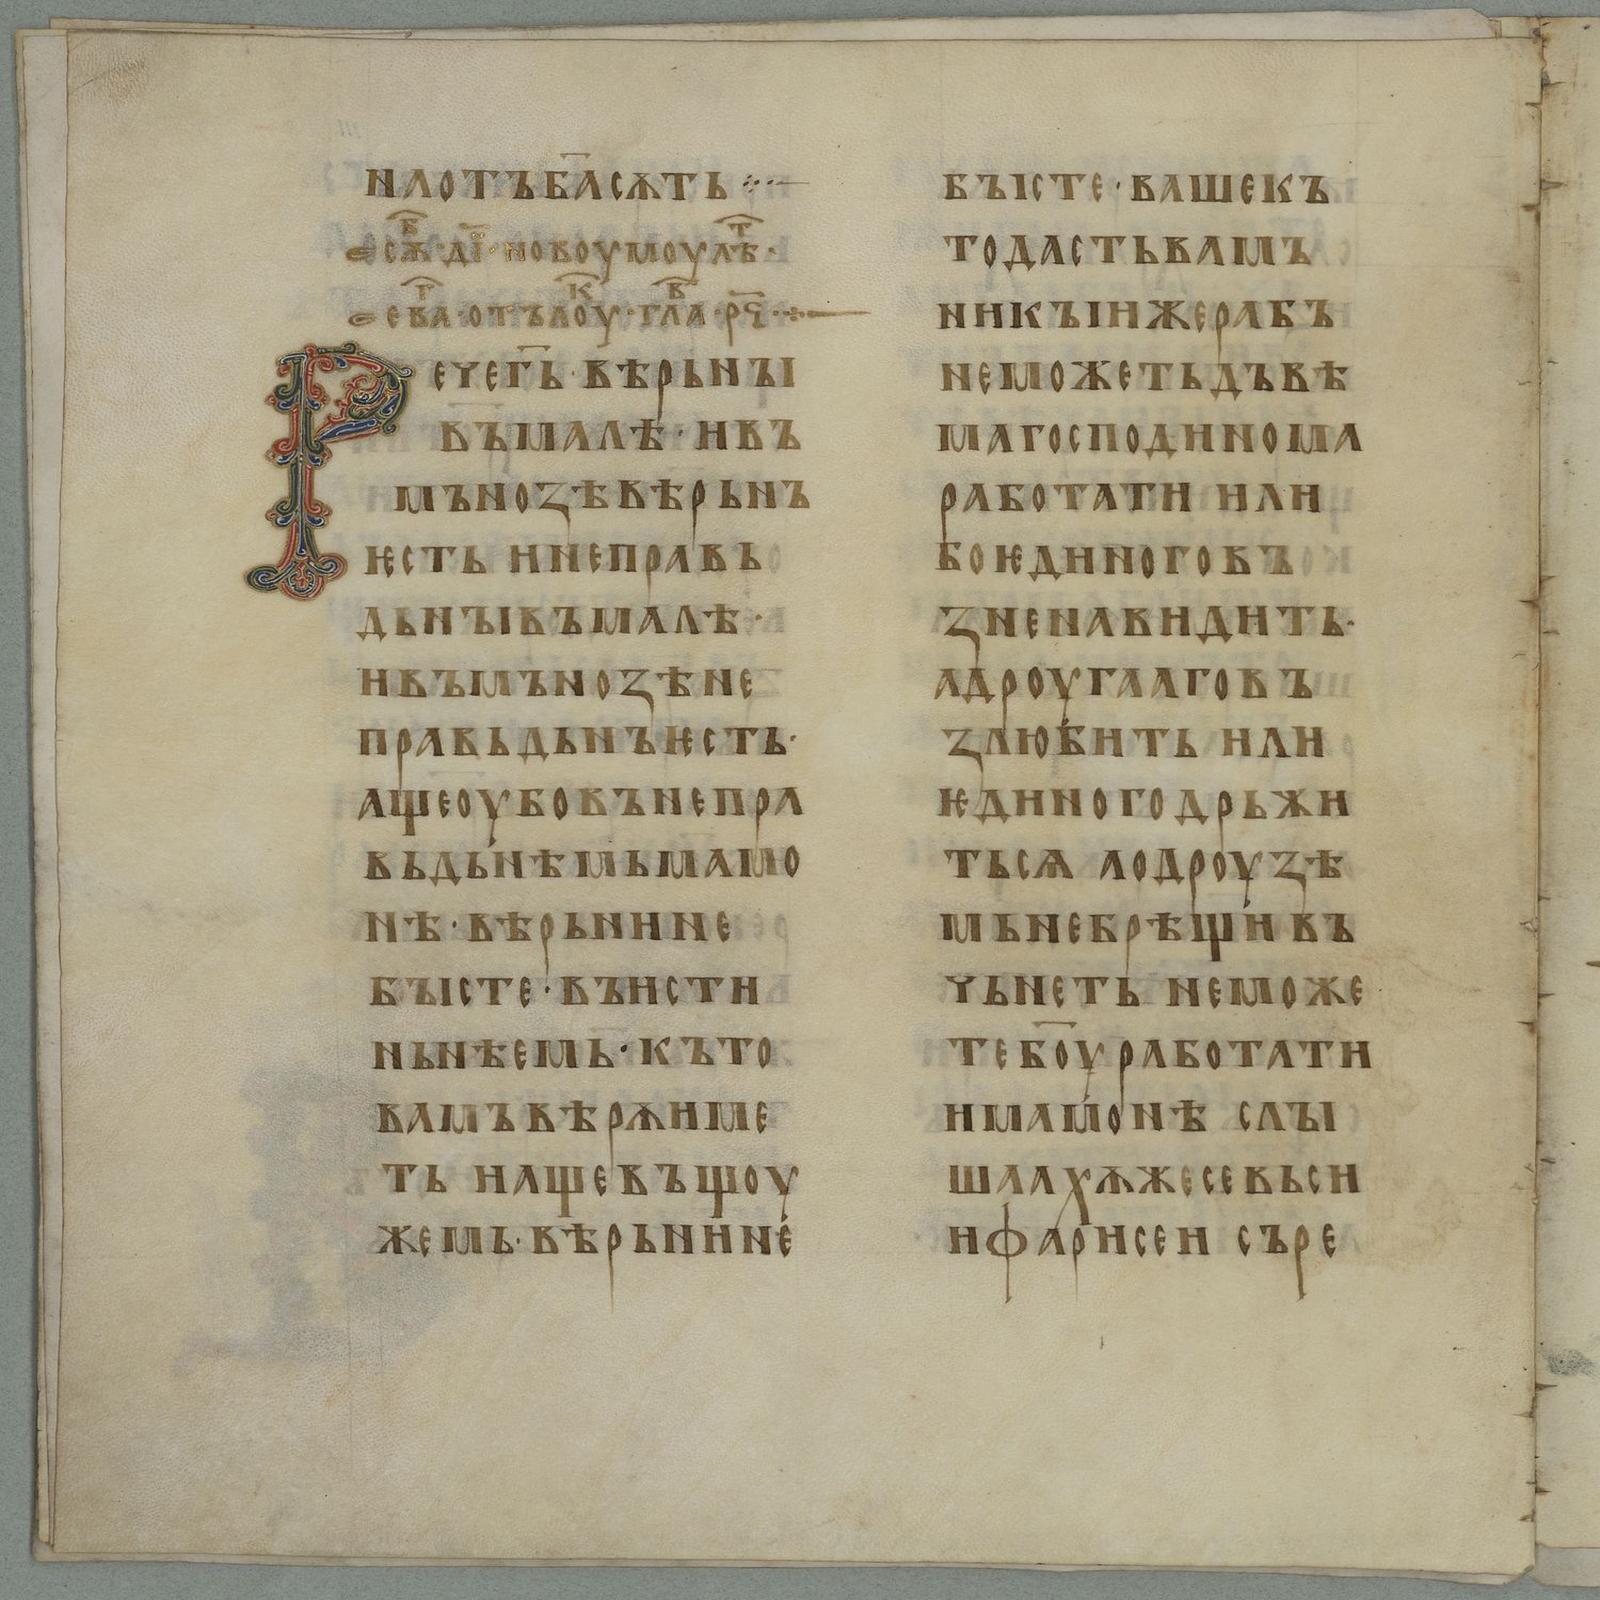 ꙆЛОТЪБ҃АСѦТЬ
СѪ·В҃·ДІ҃·НОВОУМОУЛѢТ·
ЕВА҃Г·ОТЪЛОУК҃·ГЛАВ҃·РЅ҃·
РЕЧЕГ҃Ь·ВѢРЬНЪІ
ВЪМАЛѢ·НВЪ
МЪНОꙀѢВѢРЬНЪ
ѤСТЬ ИНЕПРАВЬ
ДЬНЪІВЪМАЛѢ·
ИВЪМЪНОꙀѢНЕ
ПРАВЬДЬНЪѤСТЬ·
АЩЕОУБОВЪНЕПРА
ВЬДЬНѢМЬМАМО
НѢ·ВѢРЬНИНЕ
БЪІСТЕ·ВЪИСТИ
НЬНѢЕМЬ·КЪТО
ВАМЪВѢРѪИМЕ
ТЬ ИАЩЕВЪЩОУ
ЖЕМЬ·ВѢРЬНИНЕ
БЪІСТЕ·ВАШЕКЪ
ТОДАСТЬВАМЪ
НИКЪІИЖЕРАБЪ
НЕМОЖЕТЬДЪВѢ
МАГОСПОДИНОМА
РАБОТАТИ ИЛИ
БОѤДИНОГОВЪ
ꙀНЕНАВИДИТЬ·
АДРОУГААГОВЪ
ꙀЛЮБИТЬ ИЛИ
ѤДИНОГОДРЬЖИ
ТЬСѦ АОДРОУꙀѢ
МЬНЕБРѢЩИВЪ
ЧЬНЕТЬ НЕМОЖЕ
ТЕБ҃ОУРАБОТАТИ
ИМАМОНѢ СЛЪІ
ШААХѪЖЕСЕВЬСИ
ИФАРИСЕИ СЪРЕ